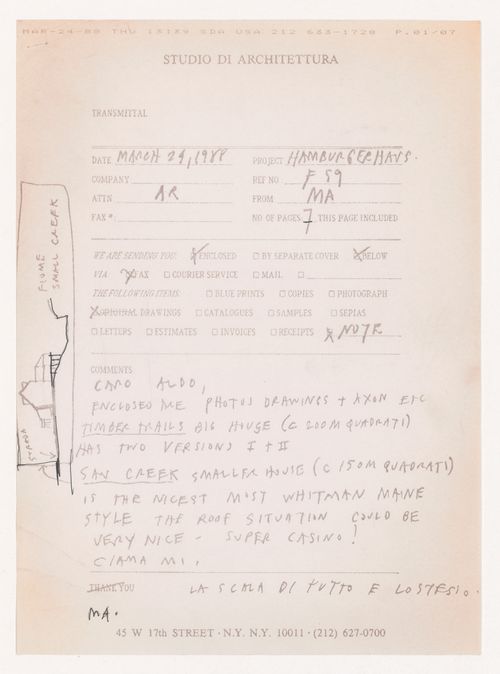 MAR-24-88 THU 13:39 SDA USA 212 663-1728 P.01/07
STUDIO DI ARCHITETTURA
TRANSMITTAL
DATE MARCH 24, 1988 PROJECT HAMBURGERHAVS.
COMPANY REF NO F 59
ATTN AR FROM MA
FAX #: NO OF PAGES 7 THIS PAGE INCLUDED
WE ARE SENDING YOU: X ENCLOSED □ BY SEPARATE COVER X BELOW
VIA: X FAX □ COURIER SERVICE □ MAIL □
THE FOLLOWING ITEMS: □ BLUE PRINTS □ COPIES □ PHOTOGRAPH
X ORIGINAL DRAWINGS □ CATALOGUES □ SAMPLES □ SEPIAS
□ LETTERS □ ESTIMATES □ INVOICES □ RECEIPTS X NOTE
COMMENTS
CARO ALDO,
ENCLOSED ARE PHOTOS DRAWINGS + AXON ETC
TIMBER TRAILS BIG HOUSE (c 200M QUADRATI)
HAS TWO VERSIONS I + II
SAW CREEK SMALLER HOUSE (c 150M QUADRATI)
IS THE NICEST MOST WHITMAN MAINE
STYLE THE ROOF SITUATION COULD BE
VERY NICE - SUPER CASINO!
CIAMA MI.
THANK YOU LA SCALA DI TUTTO E LO STESSO.
MA.
45 W 17th STREET · N.Y. N.Y. 10011 · (212) 627-0700
FIUME
SMALL CREEK
STRADA